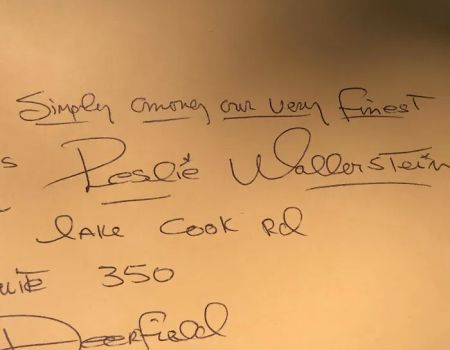 Simply among our very finest
s Leslie Wallerstein
Lake Cook Rd
uite 350
Deerfield